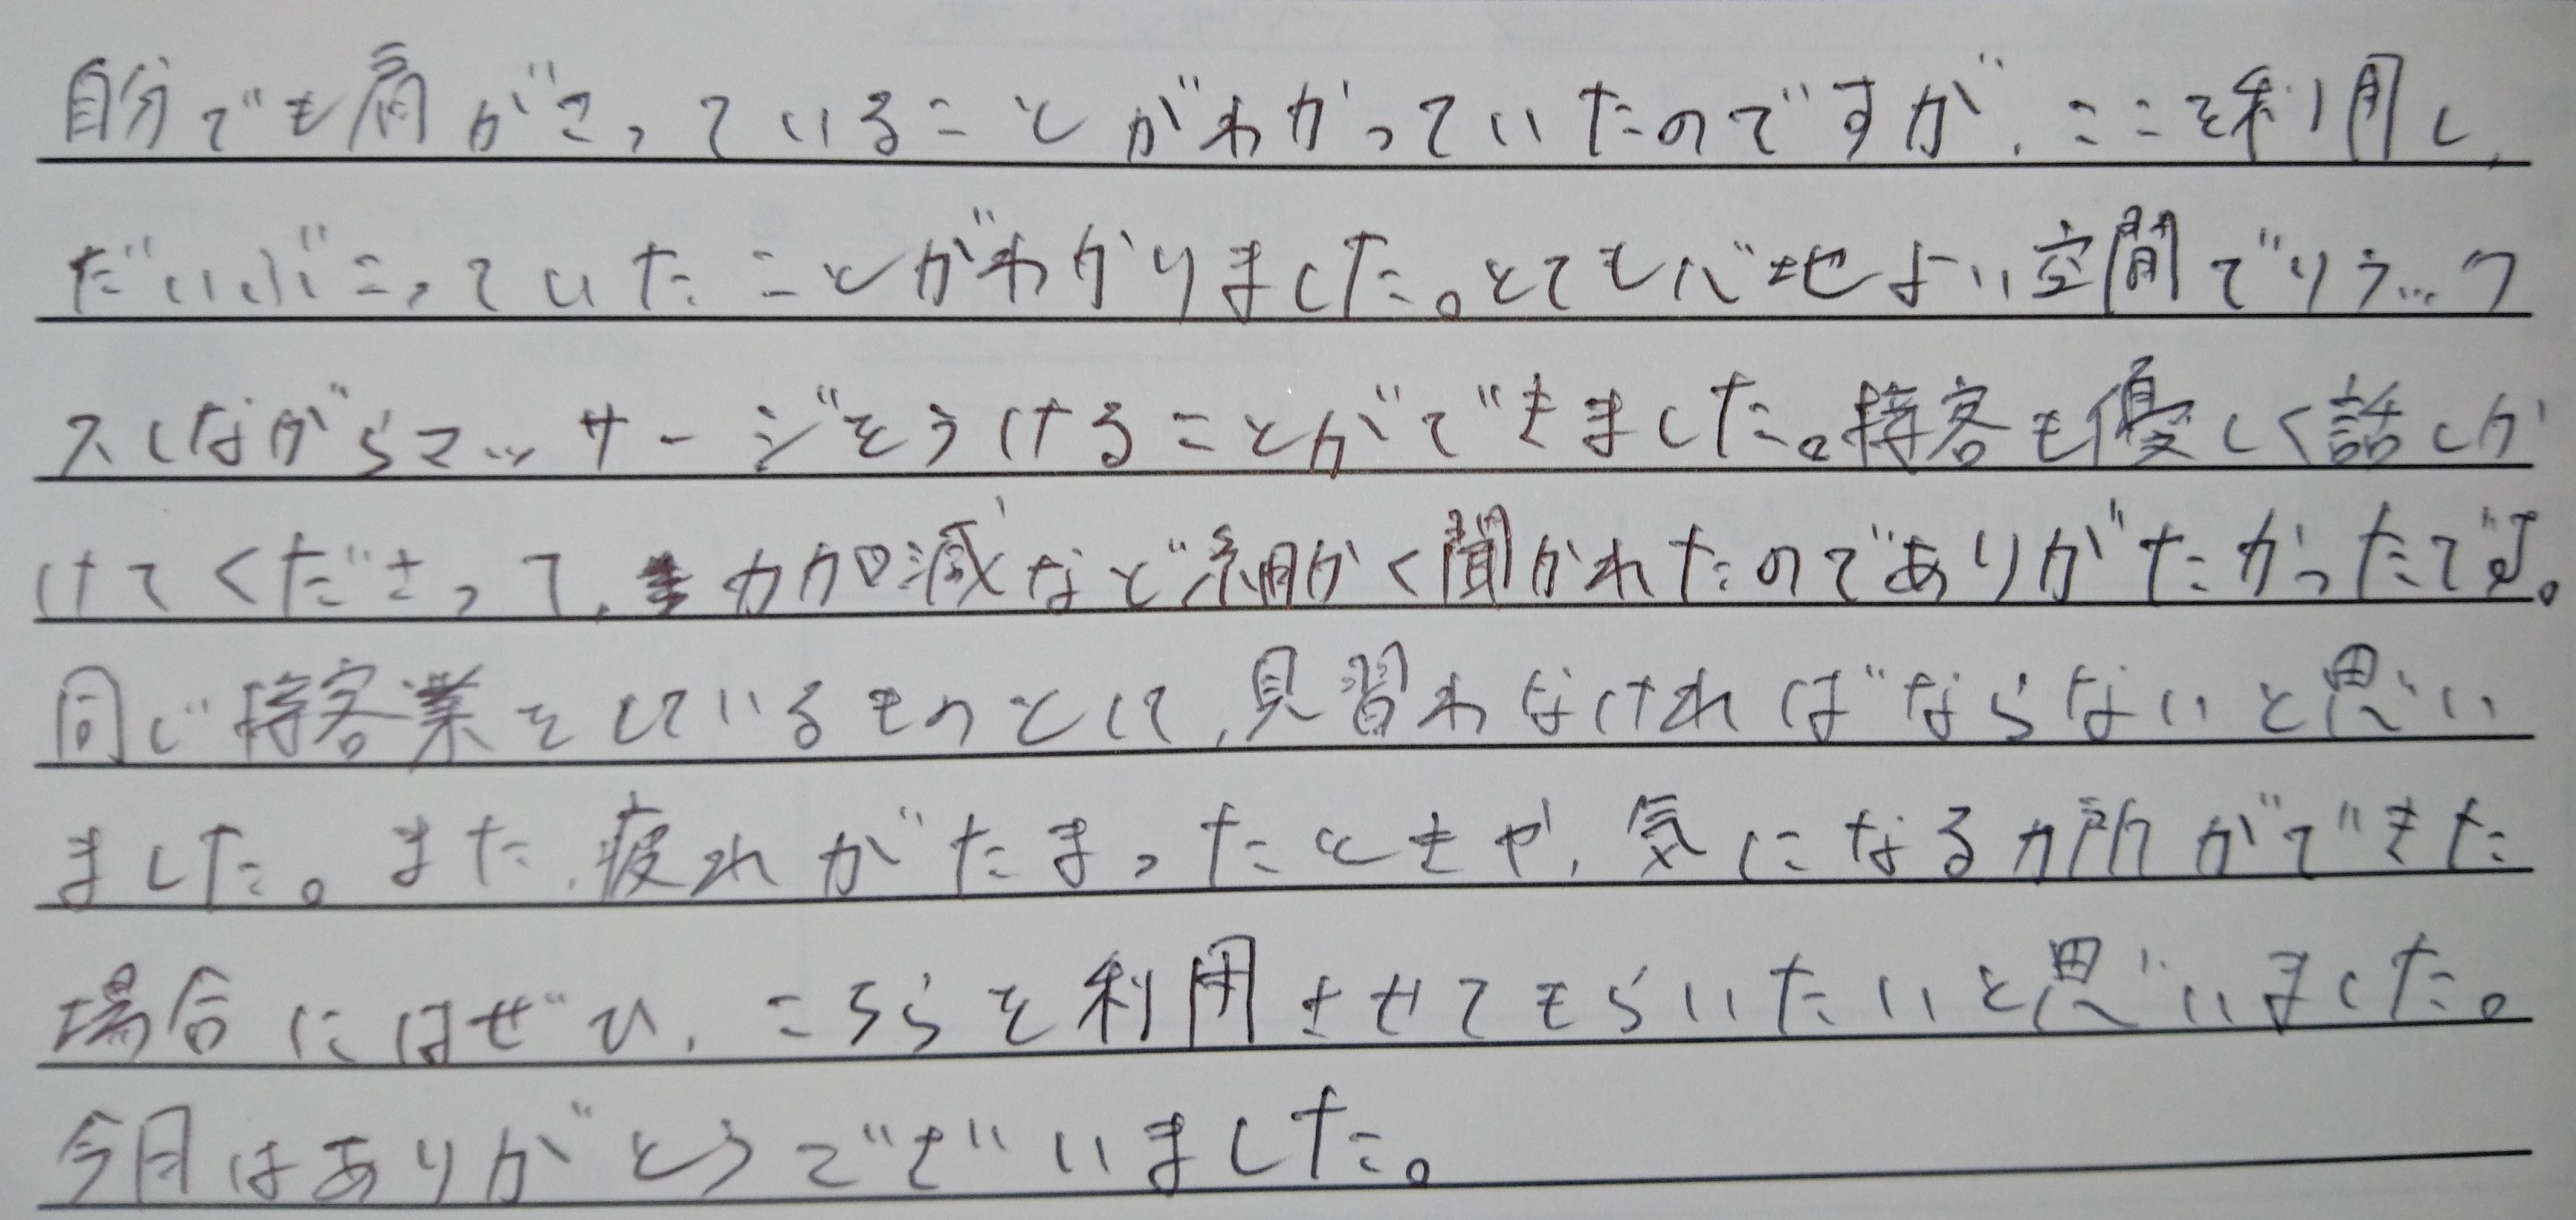 自分でも肩がこっていることがわかっていたのですが、ここを利用し、
だいぶこっていたことがわかりました。とても心地よい空間でリラック
スしながらマッサージをうけることができました。接客も優しく話しか
けてくださって、力加減など細かく聞かれたのでありがたかったです。
同じ接客業をしているものとして、見習わなければならないと思い
ました。また、疲れがたまったときや、気になるカ所ができた
場合にはぜひ、こちらを利用させてもらいたいと思いました。
今日はありがとうございました。